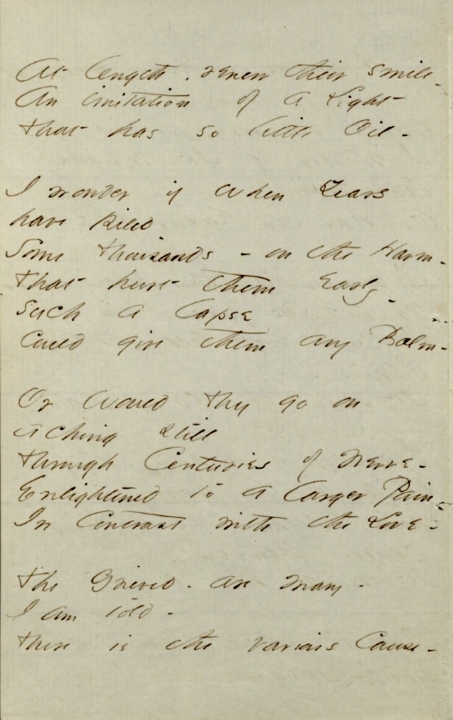 At length, renew their smile -
An imitation of a Light
That has so little Oil -
I wonder if when Years
have piled
Some thousands - on the Harm -
That hurt them Early -
Such a lapse
Could give them any Balm -
Or would they go on
aching still
Through Centuries of Nerve -
Enlightened to a larger Pain -
In Contrast with the Love -
The Grieved - are many -
I am told -
There is the various Cause -